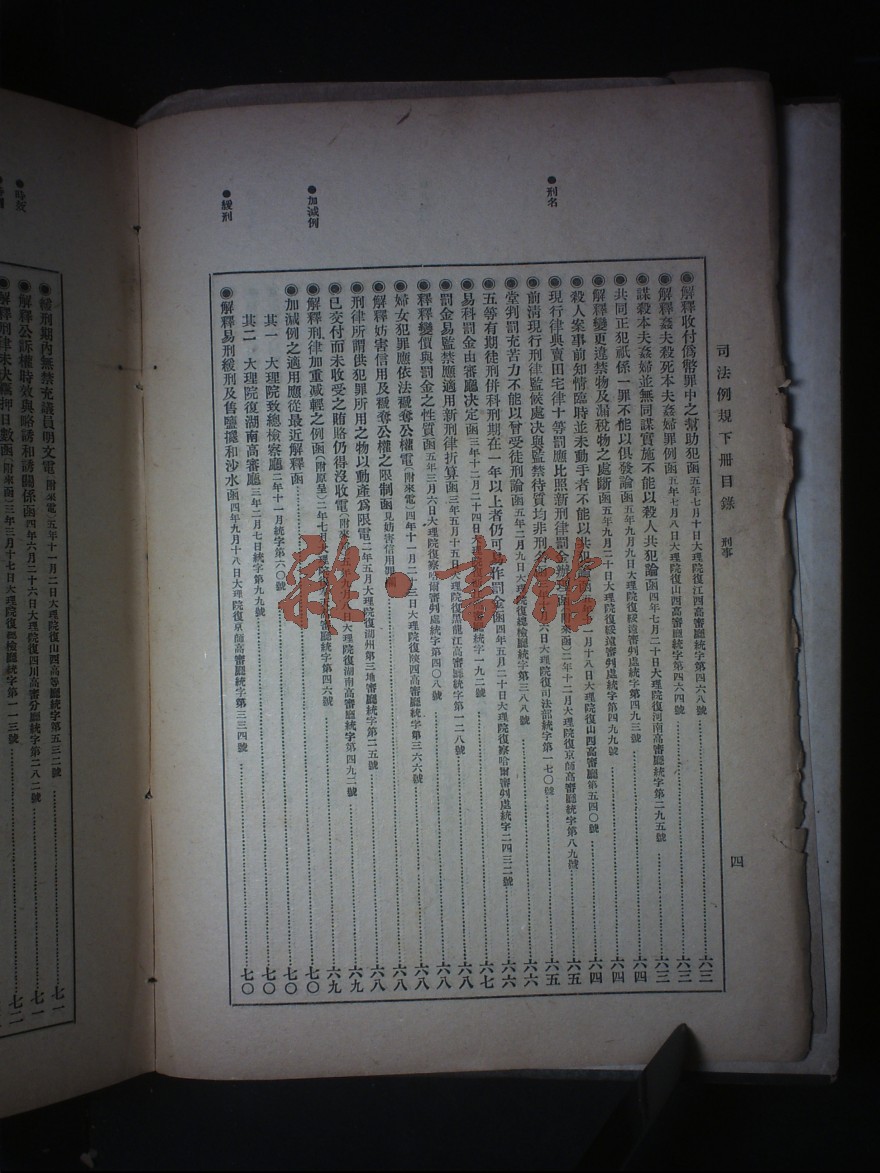 司法例規下冊目錄 刑事 四
◉解釋收付僞幣罪中之幫助犯函五年七月十日大理院復江西高審廳統字第四六八號……六三
◉解釋姦夫殺死本夫姦婦罪例函五年七月八日大理院復山西高審廳統字第四六四號……六三
◉謀殺本夫姦婦並無同謀實施不能以殺人共犯論函四年七月二十日大理院復河南高審廳統字第二九五號……六三
◉共同正犯祇係一罪不能以俱發論函五年九月九日大理院復綏遠審判處統字第四九三號……六四
◉解釋變更違禁物及漏稅物之處斷函五年九月二十日大理院復綏遠審判處統字第四九九號……六四
◉殺人案事前知情臨時並未動手者不能以共犯論函 一月十八日大理院復山西高審廳第五四〇號……六五
●刑名
◉現行律典賣田宅律十等罰應比照新刑律罰金辦理函(附來函)二年十二月大理院復京師高審廳統字第八九號……六五
◉前清現行刑律監候處決與監禁待質均非刑名 六日大理院復司法部統字第一七〇號……六六
◉堂判罰充苦力不能以曾受徒刑論函五年二月九日大理院復總檢廳統字第三八八號……六六
◉五等有期徒刑併科刑期在一年以上者仍可易作罰金函四年五月二十日大理院復察哈爾審判處統字二四三二號……六七
◉易科罰金由審廳決定函三年十二月二十四日大理院 統字一九二號……六八
◉罰金易監禁應適用新刑律折算函三年五月十五日大理院復黑龍江高審廳統字第一二八號……六八
◉釋釋變價與罰金之性質函五年三月六日大理院復察哈爾審判處統字第四〇八號……六八
◉婦女犯罪應依法褫奪公權電(附來電)四年十一月二十三日大理院復陝西高審廳統字第三六六號……六八
◉解釋妨害信用及褫奪公權之限制函見妨害信用罪……六八
◉刑律所謂供犯罪所用之物以動產爲限電二年五月大理院復湖州第三地審廳統字第二五號……六九
◉已交付而未收受之賄賂仍得沒收電(附來 五年九月八日大理院復湖南高審廳統字第四九二號……六九
●加減例
◉解釋刑律加重減輕之例函(附原呈)二年七月大理院 高審廳統字第四六號……七〇
◉加減例之適用應從最近解釋函……七〇
其一 大理院致總檢察廳二年十一月統字第六〇號……七〇
其二 大理院復湖南高審廳三年二月七日統字第九九號……七〇
●緩刑
◉解釋易刑緩刑及售鹽攙和沙水函四年九月十八日大理院復京師高審廳統字第三三四號……七〇
◉緩刑期內無禁充議員明文電(附來電)五年十一月二日大理院復山西高等廳統字第五三二號……七一
●時效
◉解釋公訴權時效與略誘和誘關係函四年六月二十六日大理院復四川高審分廳統字第二八二號……七一
◉解釋刑律未決羈押日數函(附來函)三年三月十七日大理院復總檢廳統字第一一三號……七二
雜·書館